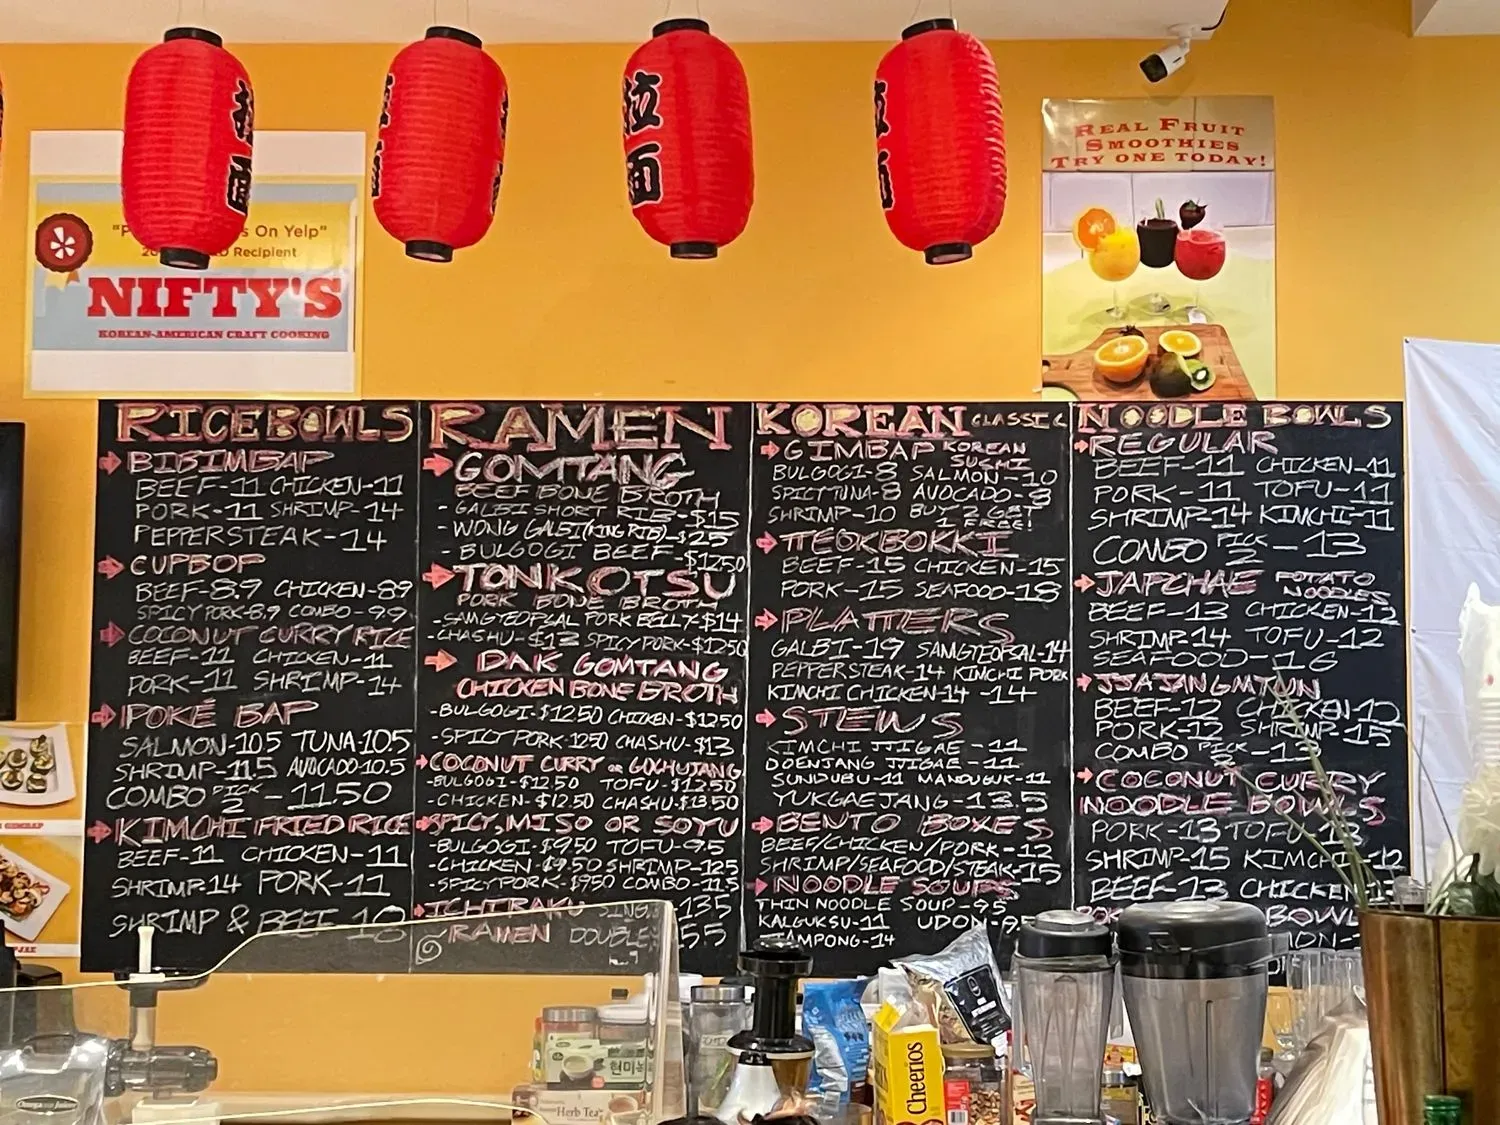 拉面
拉面
"P s On Yelp"
Recipient
NIFTY'S
KOREAN-AMERICAN CRAFT COOKING
REAL FRUIT
SMOOTHIES
TRY ONE TODAY!
RICE BOWLS
BIBIMBAP
BEEF-11 CHICKEN-11
PORK-11 SHRIMP-14
PEPPERSTEAK-14
CUPBOP
BEEF-8.9 CHICKEN-8.9
SPICY PORK-8.9 COMBO-9.9
COCONUT CURRY RICE
BEEF-11 CHICKEN-11
PORK-11 SHRIMP-14
POKÉ BAP
SALMON-10.5 TUNA-10.5
SHRIMP-11.5 AVOCADO-10.5
COMBO PICK 2 - 11.50
KIMCHI FRIED RICE
BEEF-11 CHICKEN-11
SHRIMP-14 PORK-11
SHRIMP & BEEF 18
RAMEN
GOMTANG
BEEF BONE BROTH
- GALBI SHORT RIB-$15
- WONG GALBI (KING RIB)-$25
- BULGOGI BEEF-$12.50
TONKOTSU
PORK BONE BROTH
-SAMGYEOPSAL PORK BELLY-$14
-CHASHU-$13 SPICY PORK-$12.50
DAK GOMTANG
CHICKEN BONE BROTH
-BULGOGI-$12.50 CHICKEN-$12.50
-SPICY PORK-12.50 CHASHU-$13
COCONUT CURRY OR GOCHUJANG
-BULGOGI-$12.50 TOFU-$12.50
-CHICKEN-$12.50 CHASHU-$13.50
SPICY, MISO OR SOYU
-BULGOGI-$9.50 TOFU-9.5
-CHICKEN-$9.50 SHRIMP-12.5
-SPICY PORK-$9.50 COMBO-11.5
ICHIRAKU SING 13.5
RAMEN DOUBLE 5.5
KOREAN CLASSIC
GIMBAP KOREAN SUSHI
BULGOGI-8 SALMON-10
SPICY TUNA-8 AVOCADO-8
SHRIMP-10 BUY 2 GET
1 FREE!
TTEOKBOKKI
BEEF-15 CHICKEN-15
PORK-15 SEAFOOD-18
PLATTERS
GALBI-19 SAMGYEOPSAL-14
PEPPERSTEAK-14 KIMCHI PORK
KIMCHI CHICKEN-14 -14
STEWS
KIMCHI JJIGAE-11
DOENJANG JJIGAE-11
SUNDUBU-11 MANDUGUK-11
YUKGAEJANG-13.5
BENTO BOXES
BEEF/CHICKEN/PORK-12
SHRIMP/SEAFOOD/STEAK-15
NOODLE SOUPS
THIN NOODLE SOUP-9.5
KALGUKSU-11 UDON-9.5
JAMPONG-14
NOODLE BOWLS
REGULAR
BEEF-11 CHICKEN-11
PORK-11 TOFU-11
SHRIMP-14 KIMCHI-11
COMBO PICK 2 - 13
JAPCHAE POTATO NOODLES
BEEF-13 CHICKEN-12
SHRIMP-14 TOFU-12
SEAFOOD-16
JJAJANGMYUN
BEEF-12 CHICKEN-12
PORK-12 SHRIMP-15
COMBO PICK 2 -13
COCONUT CURRY
NOODLE BOWLS
PORK-13 TOFU-13
SHRIMP-15 KIMCHI-12
BEEF-13 CHICKEN-13
BOWL
Cheerios
현미녹
Herb Tea